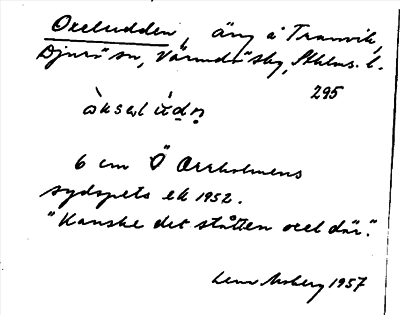 Oxeludden, äng å Tranvik,
Djurö sn, Värmdö skg, Sthlms l.
295
àksəl ùdn̥
6 cm Ö Orrholmens
sydspets ek 1952.
"Kanske det stått en oxel där."
Lena Moberg 1957